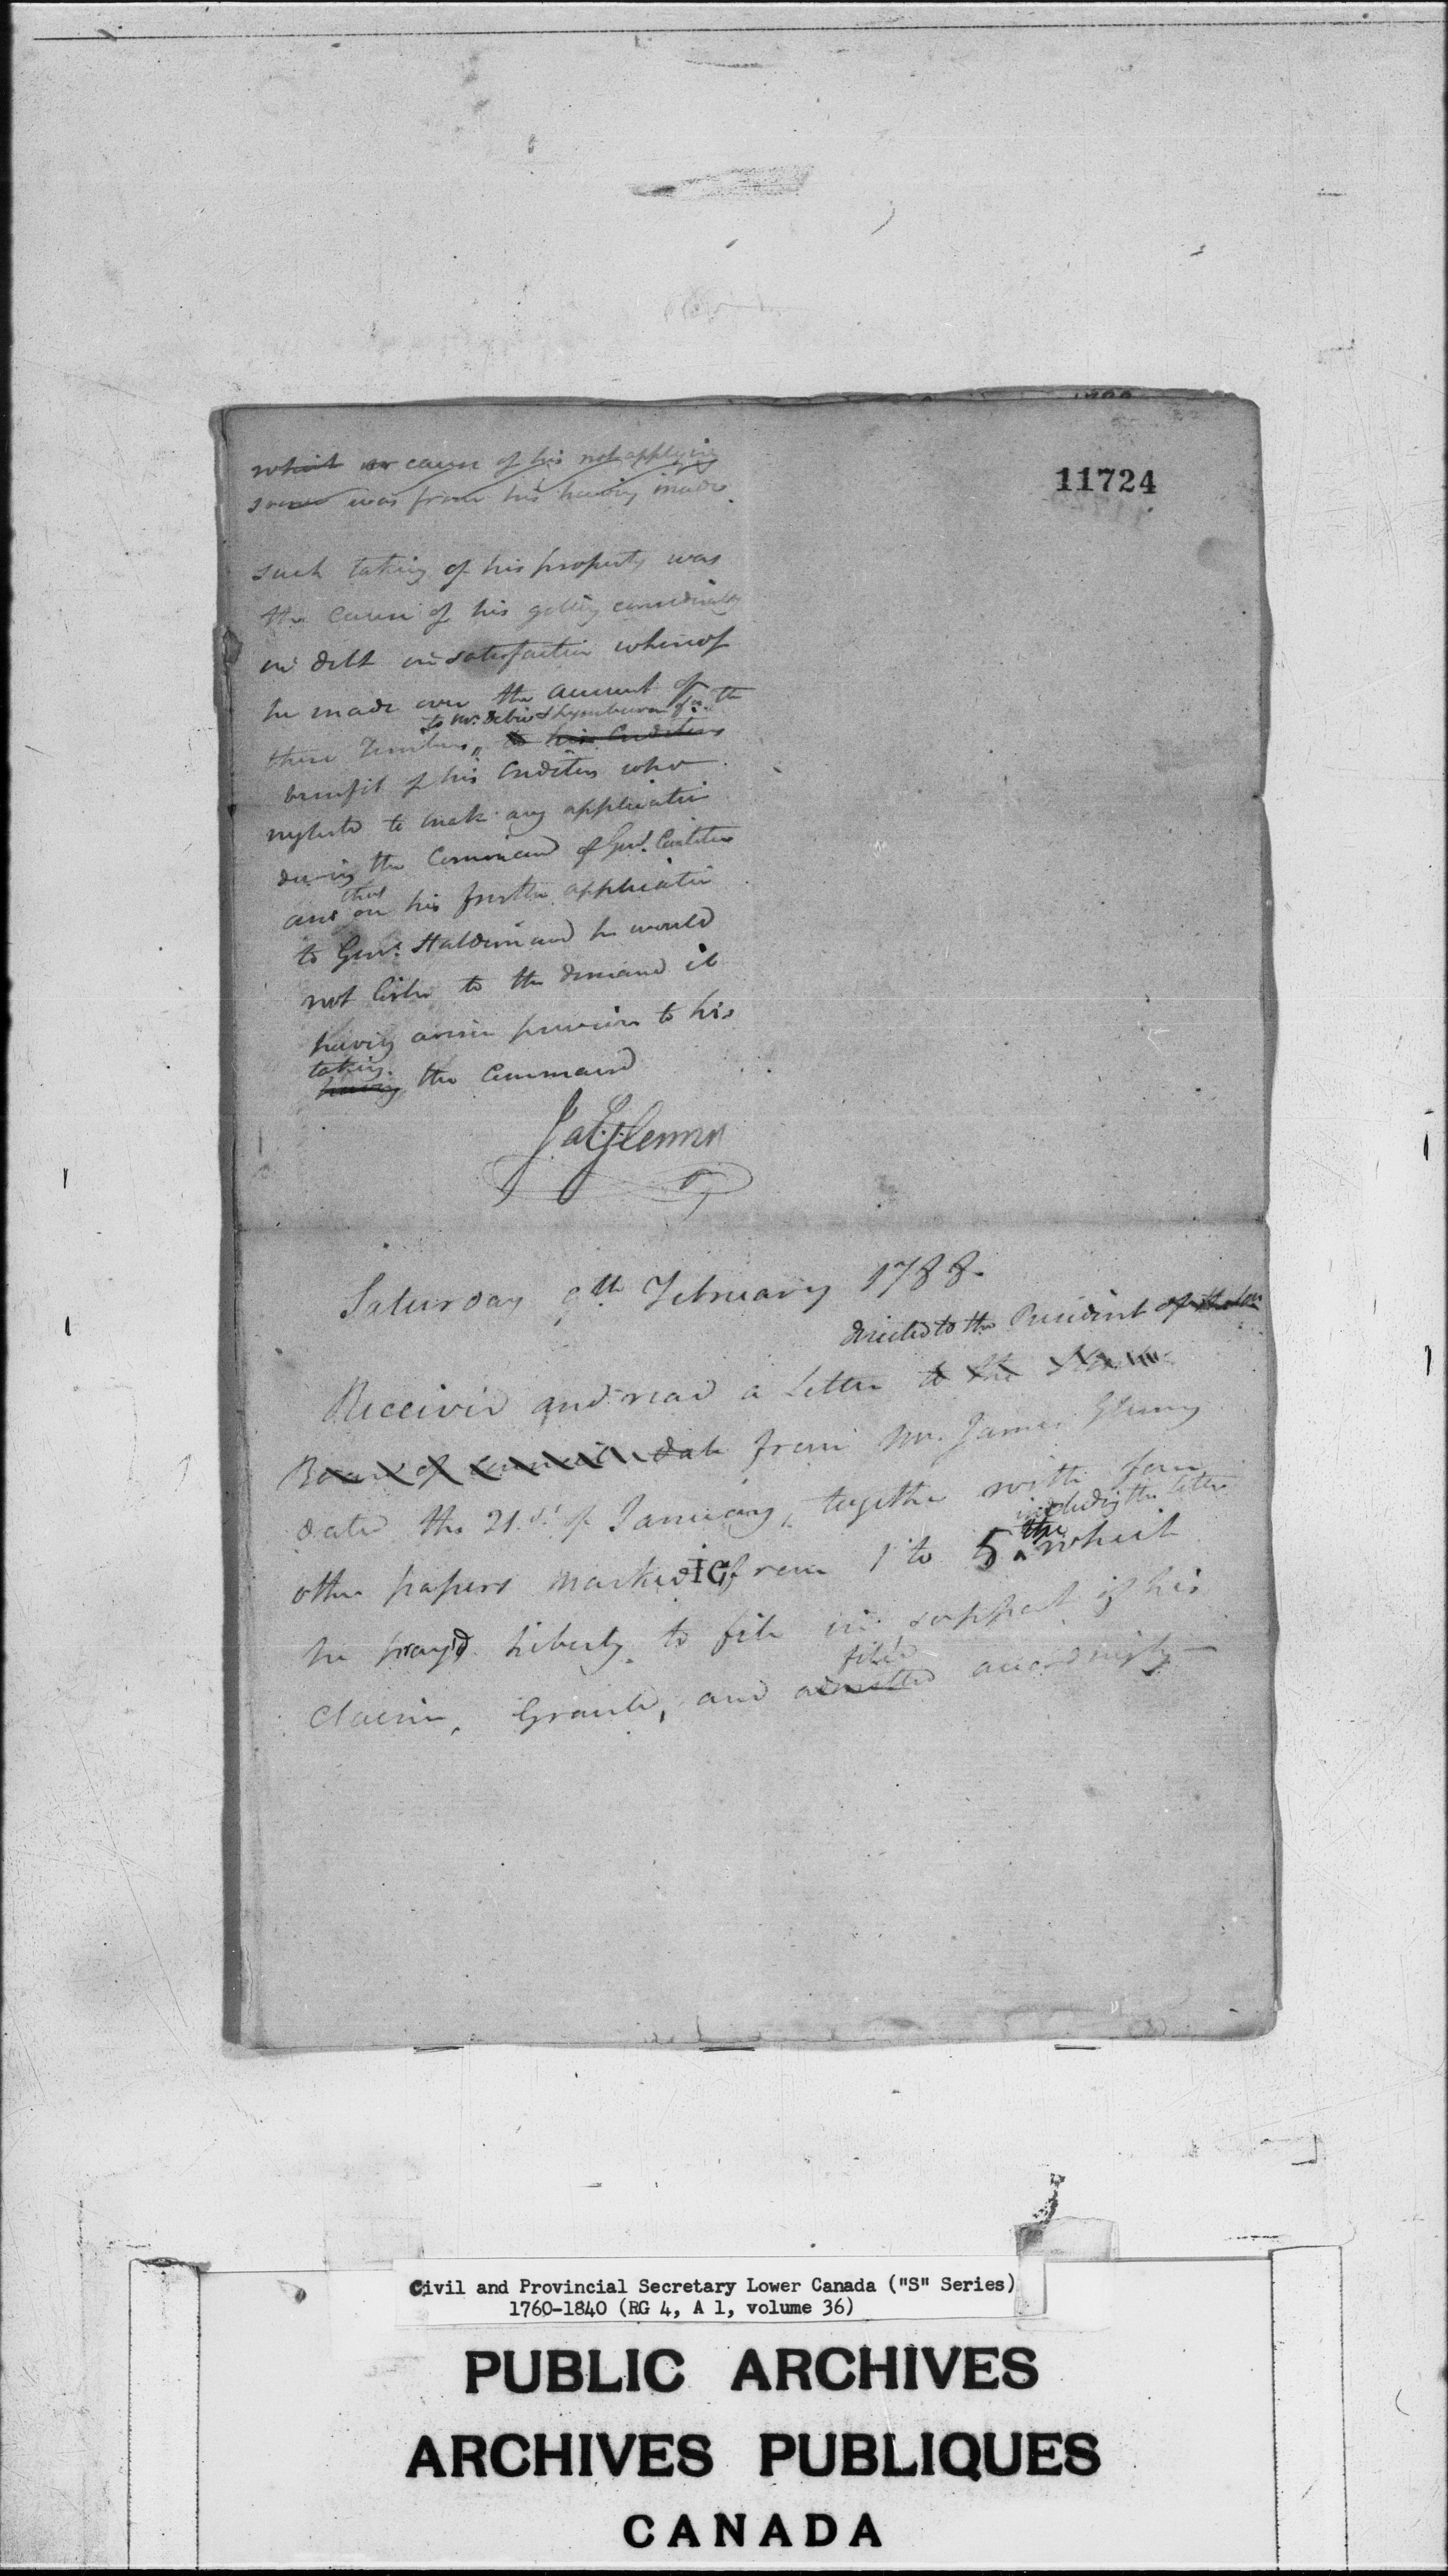 11724
which or cause of his not applying
sooner was from his having made
such taking of his property was
the cause of his getting considerably
in debt in satisfaction whereof
he made over the amount of
to Mr. Adam Lymburner for the
these Timbers, to his Creditors
benefit of his Creditors who
neglected to make any application
during the Command of Genl. Carleton
and that on his further application
to Genl. Haldimand he would
not listen to the demand it
having arisen previous to his
taking
having the Command
Ja: Glenny
Saturday 9th February 1788.
directed to the President of the
Received and read a Letter to the
Board of Council date from Mr. James Glenny
dated the 21st of January, together with four
including the letter
other papers marked IG from 1 to 5 the which
he pray'd liberty to file in support of his
filed
Claim, Granted, and admitted accordingly
Civil and Provincial Secretary Lower Canada ("S" Series)
1760-1840 (RG 4, A 1, volume 36)
PUBLIC ARCHIVES
ARCHIVES PUBLIQUES
CANADA